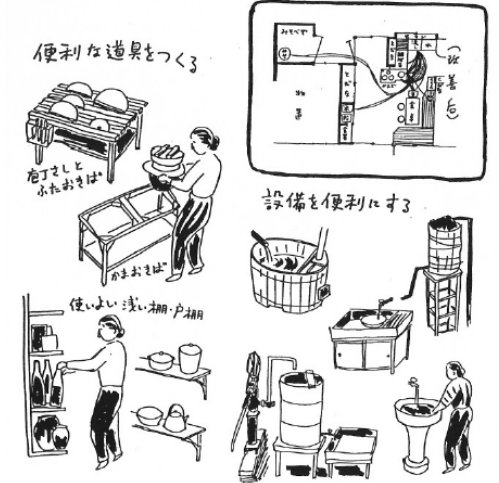 便利な道具をつくる
庖丁さしと
ふたおきば
かまおきば
使いよい浅い棚・戸棚
みそべや
物置
とだな
(改善后)
設備を便利にする